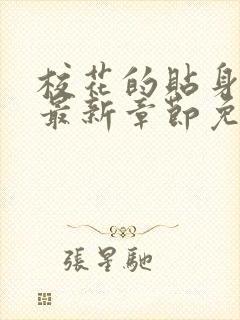 校花的貼身
最新章節免
張星馳